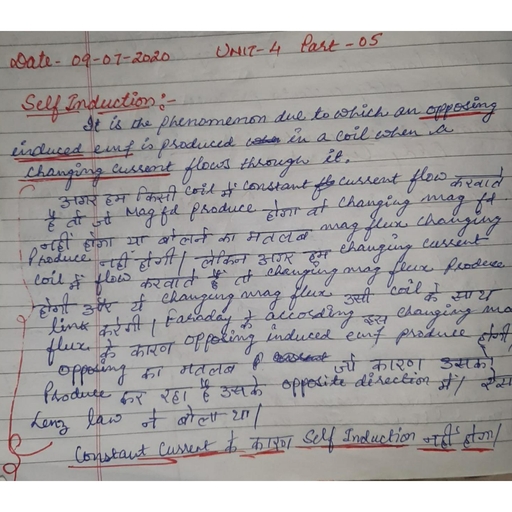 Date - 09-07-2020 UNIT-4 Part - 05
Self Induction :-
It is the phenomenon due to which an opposing
induced emf is produced in a coil when a
changing current flows through it.
अगर हम किसी coil में constant current flow करवाते
है तो जो mag fd produce होगा वो changing mag fd
नहीं होगा या बोलने का मतलब mag flux changing
Produce नहीं होगी। लेकिन अगर हम changing current
coil में flow करवाते है तो changing mag flux Produce
होगी और ये changing mag flux उसी coil के साथ
link करेगी। Faraday के according इस changing mag
flux के कारण opposing induced emf produce होगी,
opposing का मतलब जो कारण उसको
Produce कर रहा है उसके opposite direction में। ऐसा
Lenz law ने बोला था।
Constant Current के कारण Self Induction नहीं होगा।